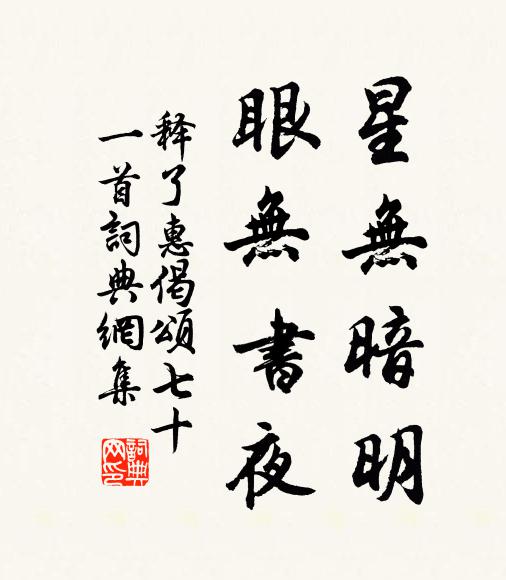 星無暗明
眼無書夜
释了惠偈頌七十
一首詞典網集
詞典
网印